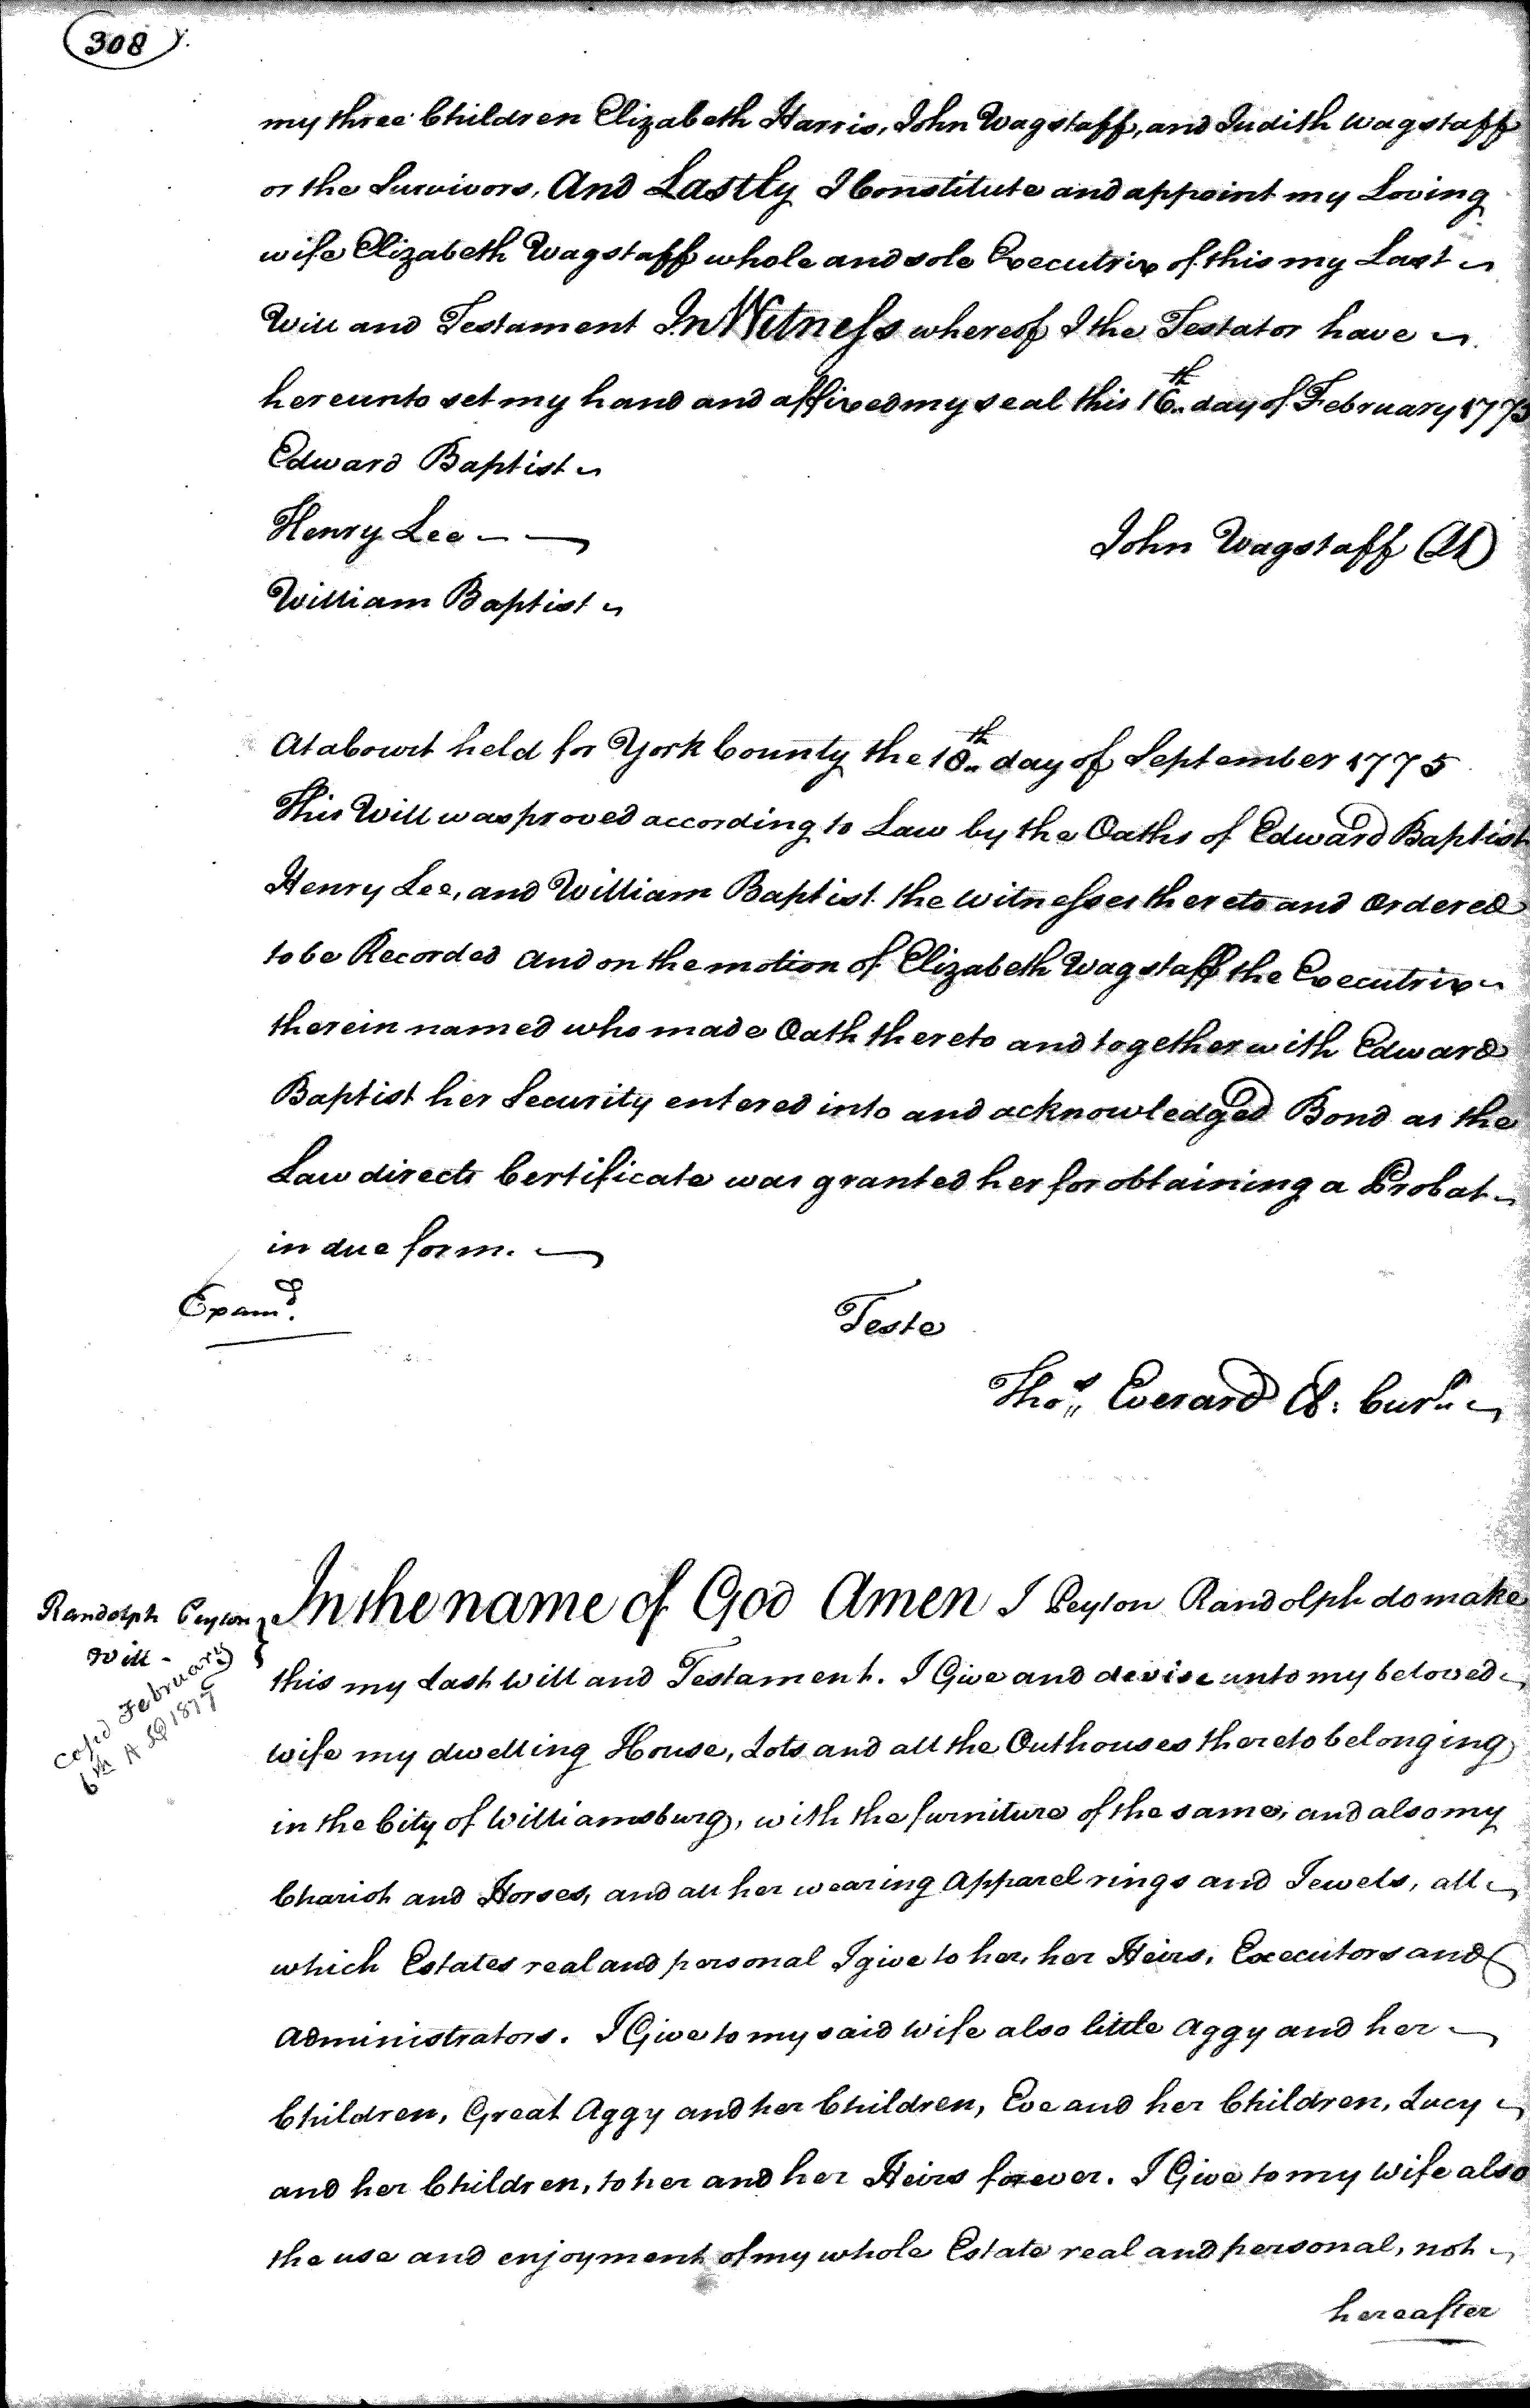 308
my three Children Elizabeth Harris, John Wagstaff, and Judith Wagstaff
or the Survivors, And Lastly I Constitute and appoint my Loving
wife Elizabeth Wagstaff whole and sole Executrix of this my Last
Will and Testament In Witness whereof I the Testator have
hereunto set my hand and affixed my seal this 16th day of February 1773
Edward Baptist
Henry Lee
John Wagstaff (LS)
William Baptist
At a Court held for York County the 18th day of September 1775
This Will was proved according to Law by the Oaths of Edward Baptist
Henry Lee, and William Baptist the witnesses thereto and Ordered
to be Recorded and on the motion of Elizabeth Wagstaff the Executrix
therein named who made Oath thereto and together with Edward
Baptist her Security entered into and acknowledged Bond as the
Law directs Certificate was granted her for obtaining a Probat
in due form.
Examd.
Teste
Thos. Everard Cl: Cur
Randolph Peyton
Will
copd February
6th A D 1877
In the name of God Amen I Peyton Randolph do make
this my Last Will and Testament. I Give and devise unto my beloved
wife my dwelling House, Lots and all the Outhouses thereto belonging
in the City of Williamsburg, with the furniture of the same, and also my
Chariot and Horses, and all her wearing Apparel rings and Jewels, all
which Estates real and personal I give to her, her Heirs, Executors and
Administrators. I Give to my said Wife also little Aggy and her
Children, Great Aggy and her Children, Eve and her Children, Lucy
and her Children, to her and her Heirs forever. I Give to my Wife also
the use and enjoyment of my whole Estate real and personal, not
hereafter